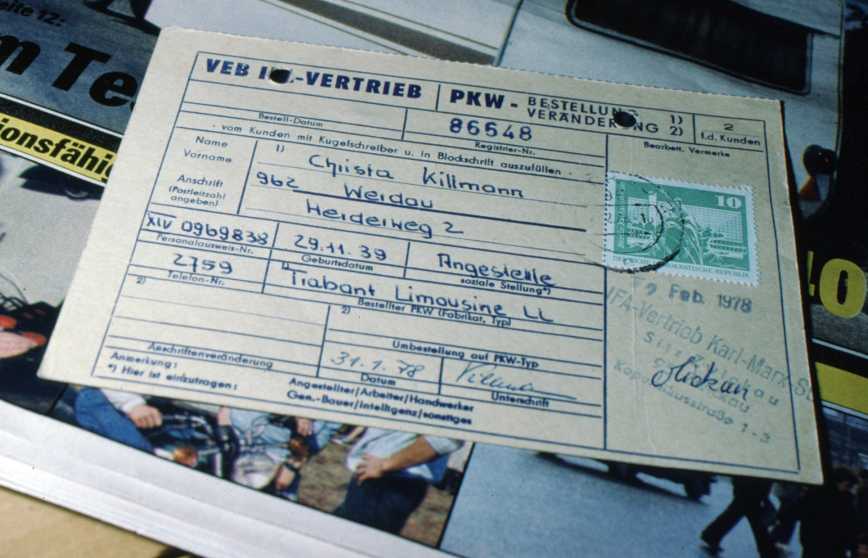 Seite 12:
VEB -VERTRIEB PKW- BESTELLUNG 1) 2
VERÄNDERUNG 2) f.d. Kunden
Bestell-Datum
86648
Registrier-Nr.
Bearbeit. Vermerke
vom Kunden mit Kugelschreiber u. in Blockschrift auszufüllen
Name 1) Christa Killmann
Vorname
Anschrift 962 Werdau
(Postleitzahl angeben) Herderweg 2
10
DEUTSCHE DEMOKRATISCHE REPUBLIK
XIV 0969838 29.11.39 Angestellte
Personalausweis-Nr. Geburtsdatum soziale Stellung*)
2759 1) Trabant Limousine LL
Telefon-Nr. Bestellter PKW (Fabrikat, Typ)
2) 2)
Umbestellung auf PKW-Typ
31.1.78
Anschriftenveränderung Datum Unterschrift
Anmerkung:
*) Hier ist einzutragen: Angestellter/Arbeiter/Handwerker
Gen.-Bauer/Intelligenz/sonstiges
Feb. 1978
IFA-Vertrieb Karl-Marx-St
1-3